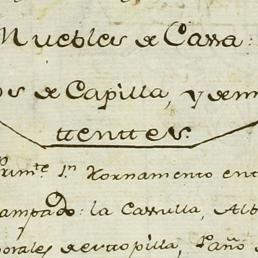 Muebles de Cassa:
os de Capilla, y dem
ttenttes.
Prim.te 1.n Hornamento ent
ampado: la Cassulla, Alb
porales de esttopilla, Paño